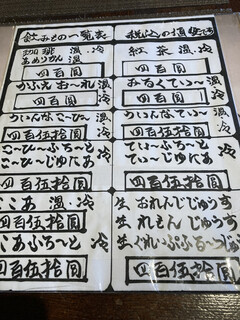 飲みもの一覧表
税込の値段です
珈琲 温、冷
あめりかん 温
四百圓
紅茶 温、冷
四百圓
かふえおーれ 温、冷
四百伍拾圓
みるくてぃー 温、冷
四百伍拾圓
ういんなこーひー 温、冷
四百伍拾圓
ういんなてぃー 温、冷
四百伍拾圓
こーひーふろーと
こーひーじゅにあ
四百伍拾圓
てぃーふろーと
てぃーじゅにあ
四百伍拾圓
ここあ 温、冷
四百伍拾圓
ここあふろーと 冷
四百伍拾圓
生 おれんじじゅうす
生 れもんじゅうす
生 ぐれいぷふるーつじゅうす
四百伍拾圓